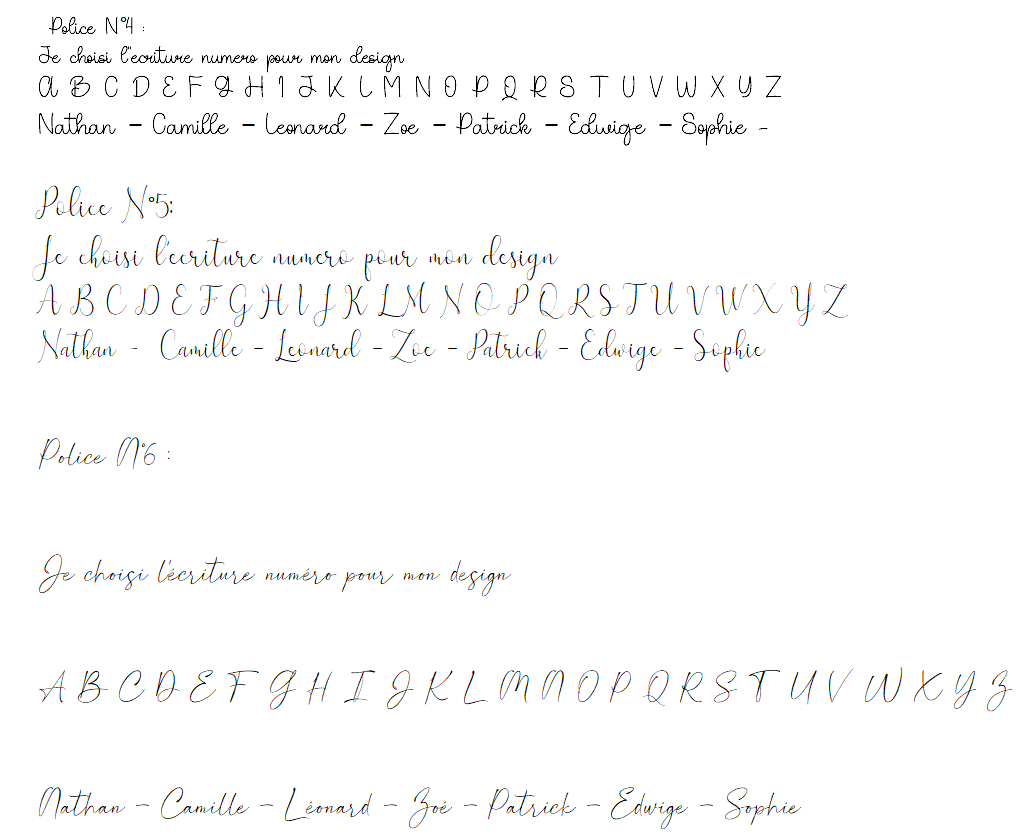 Police N°4 :
Je choisi l'ecriture numero pour mon design
A B C D E F G H I J K L M N O P Q R S T U V W X Y Z
Nathan - Camille - Leonard - Zoe - Patrick - Edwige - Sophie -
Police N°5:
Je choisi l'ecriture numero pour mon design
A B C D E F G H I J K L M N O P Q R S T U V W X Y Z
Nathan - Camille - Leonard - Zoe - Patrick - Edwige - Sophie
Police N°6 :
Je choisi l'écriture numéro pour mon design
A B C D E F G H I J K L M N O P Q R S T U V W X Y Z
Nathan - Camille - Léonard - Zoé - Patrick - Edwige - Sophie